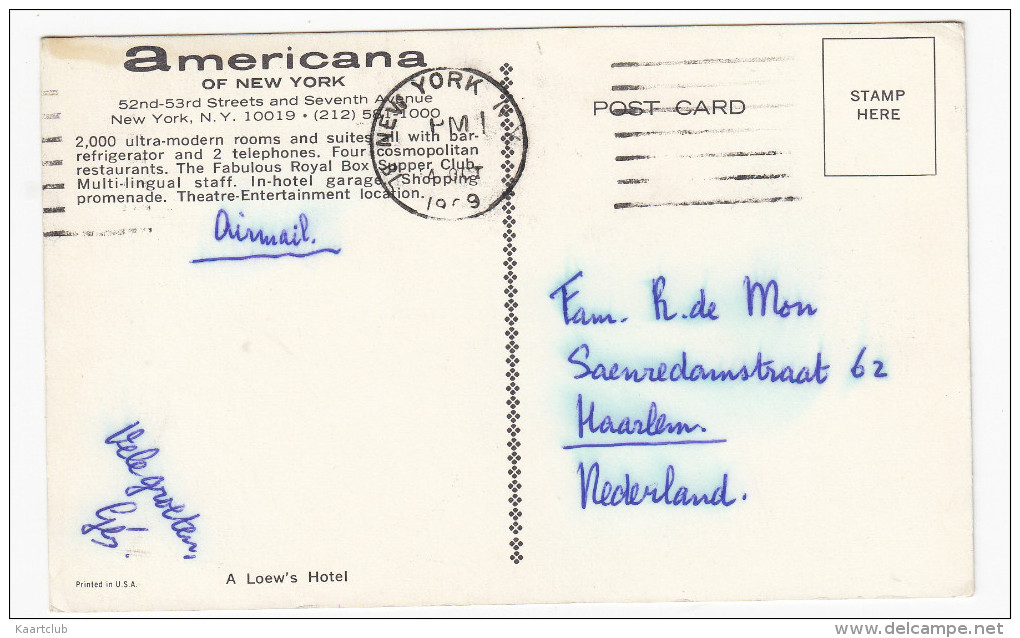 americana
OF NEW YORK
52nd-53rd Streets and Seventh Avenue
New York, N.Y. 10019 • (212) 581-1000
2,000 ultra-modern rooms and suites all with bar-
refrigerator and 2 telephones. Four cosmopolitan
restaurants. The Fabulous Royal Box Supper Club.
Multi-lingual staff. In-hotel garage. Shopping
promenade. Theatre-Entertainment location.
NEW YORK N.Y.
PM
1969
POST CARD
STAMP
HERE
Airmail.
Fam. R. de Mon
Saenredamstraat 62
Haarlem.
Nederland.
Vele groeten,
Printed in U.S.A.
A Loew's Hotel
Kaartclub
www.delcampe.net